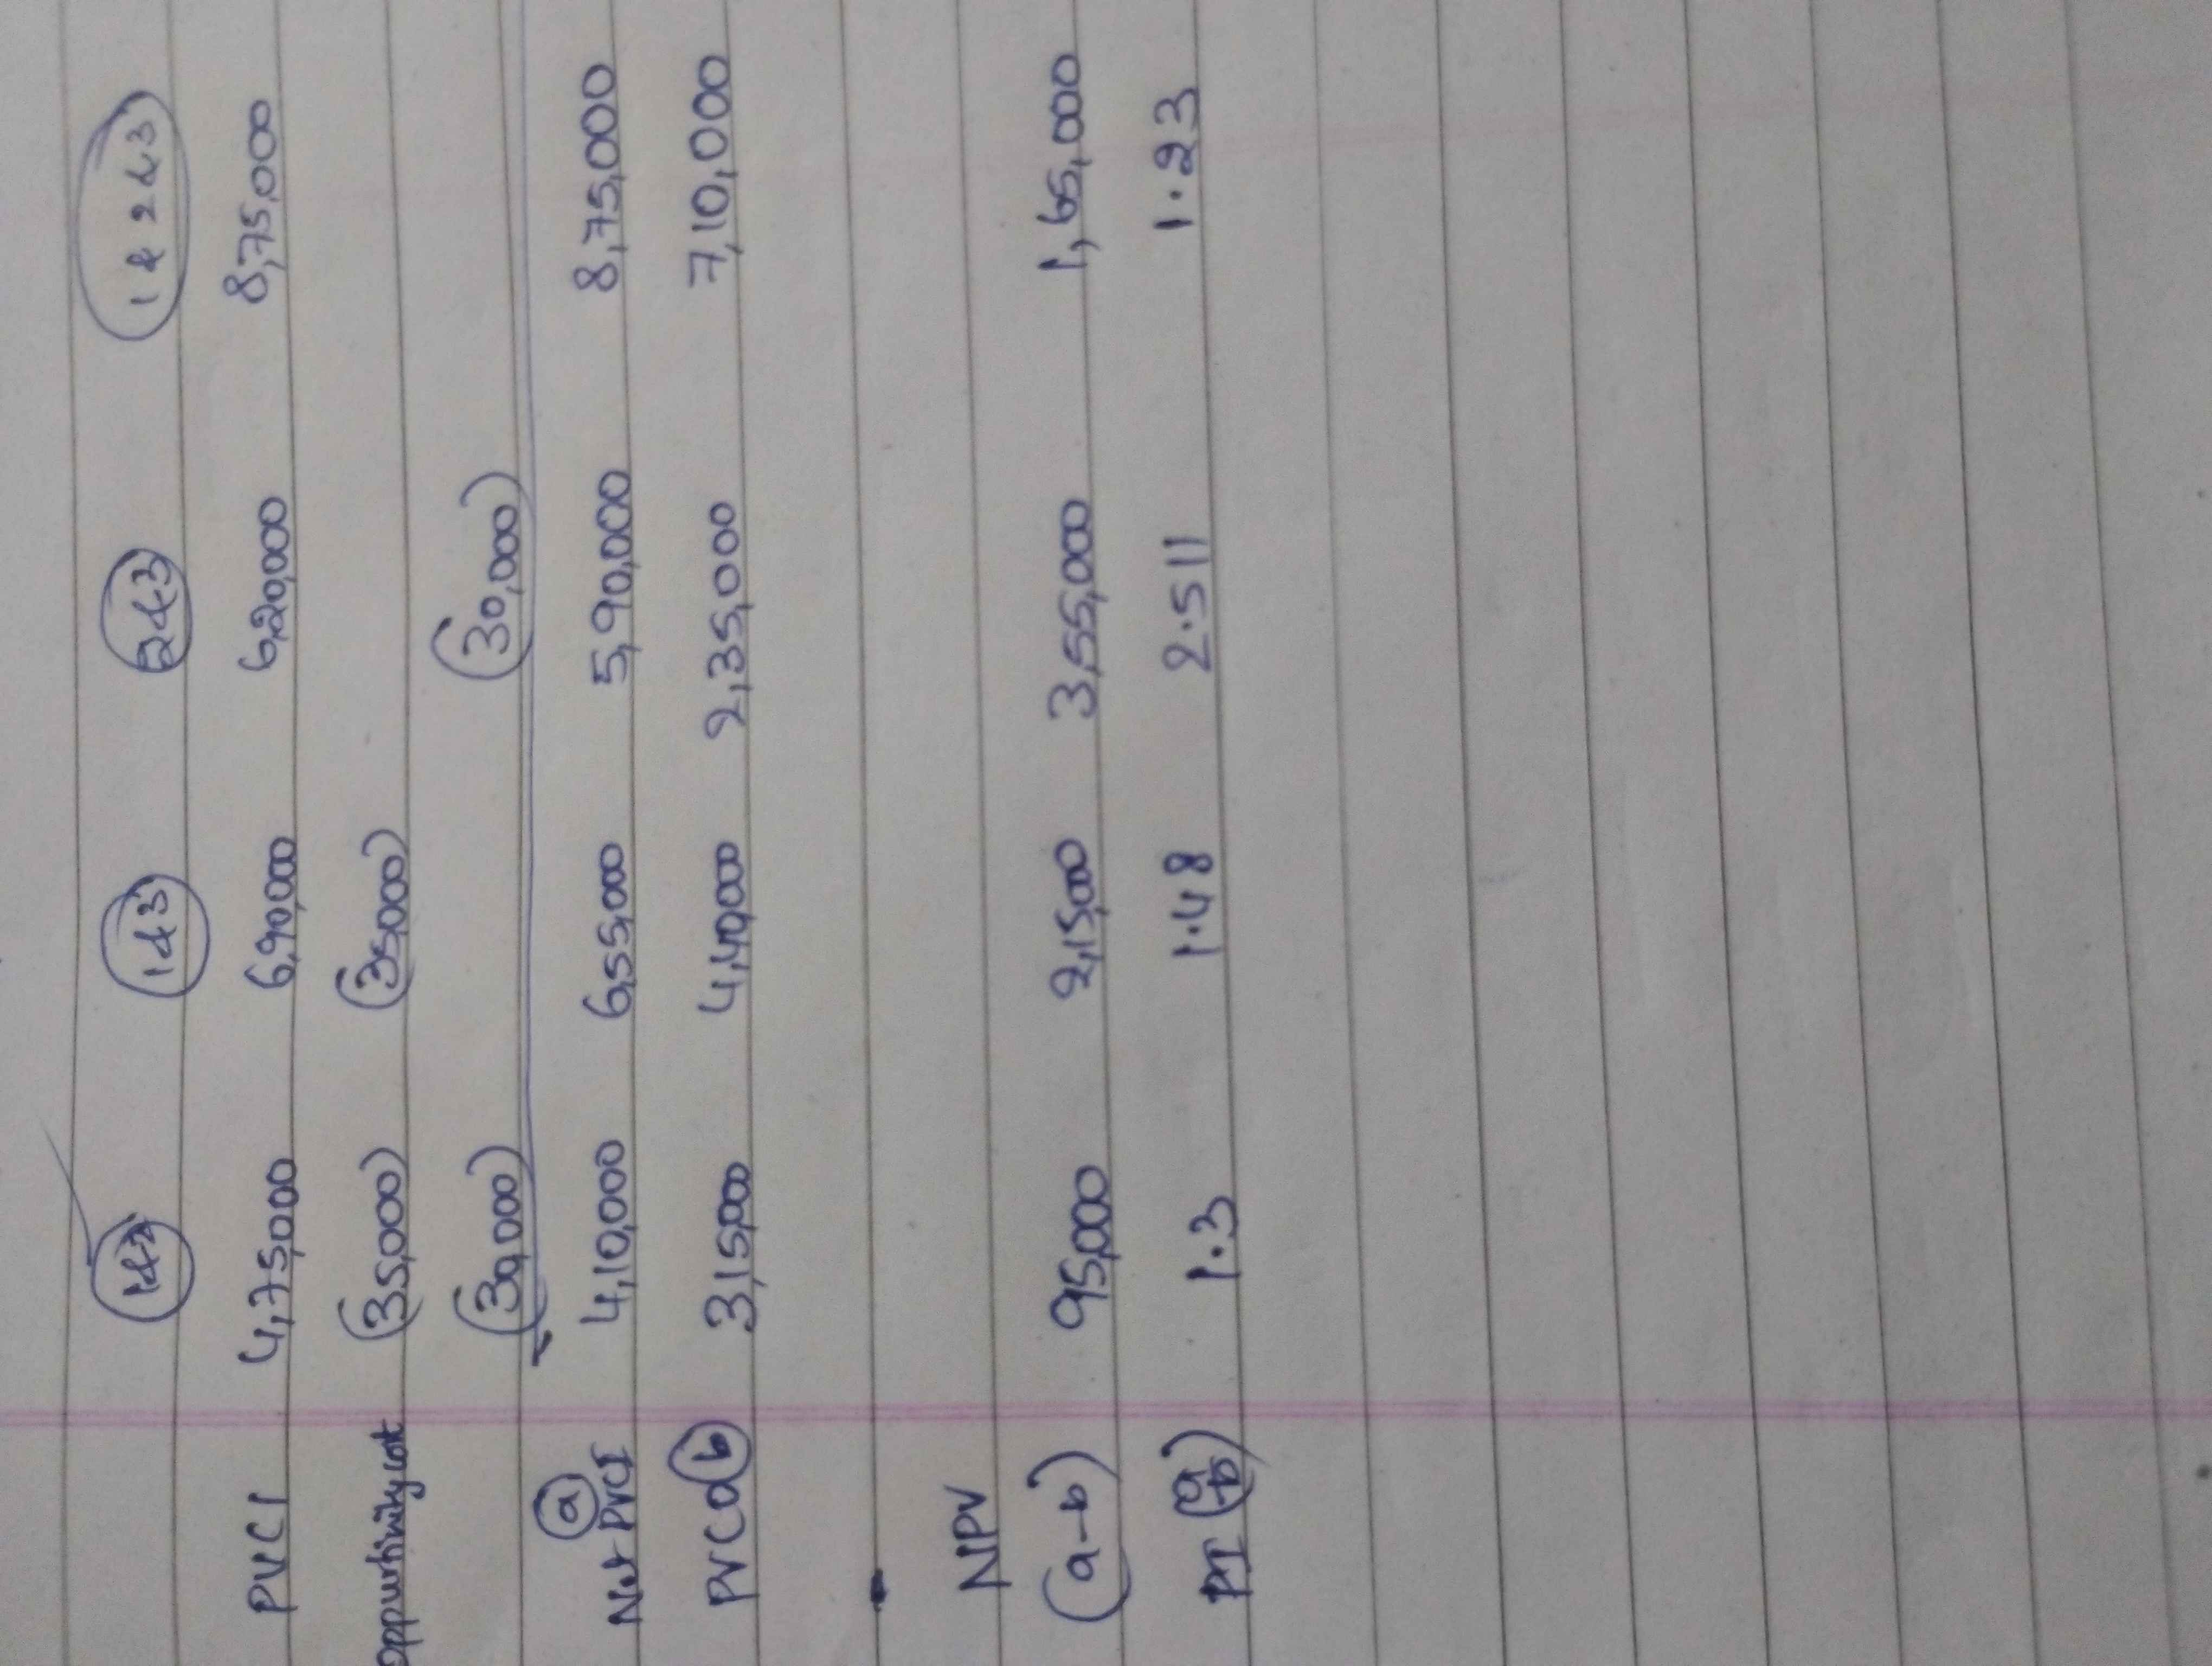 1&2 1&3 2&3 1 & 2 &3
PVCI 4,75,000 6,90,000 6,20,000 8,75,000
Oppurtinity cost (35,000) (35,000)
(30,000) (30,000)
(a)
Net PVCI 4,10,000 6,55,000 5,90,000 8,75,000
PVCO (b) 3,15,000 4,40,000 2,35,000 7,10,000
NPV
(a-b) 95,000 2,15,000 3,55,000 1,65,000
PI (a/b) 1.3 1.48 2.511 1.23